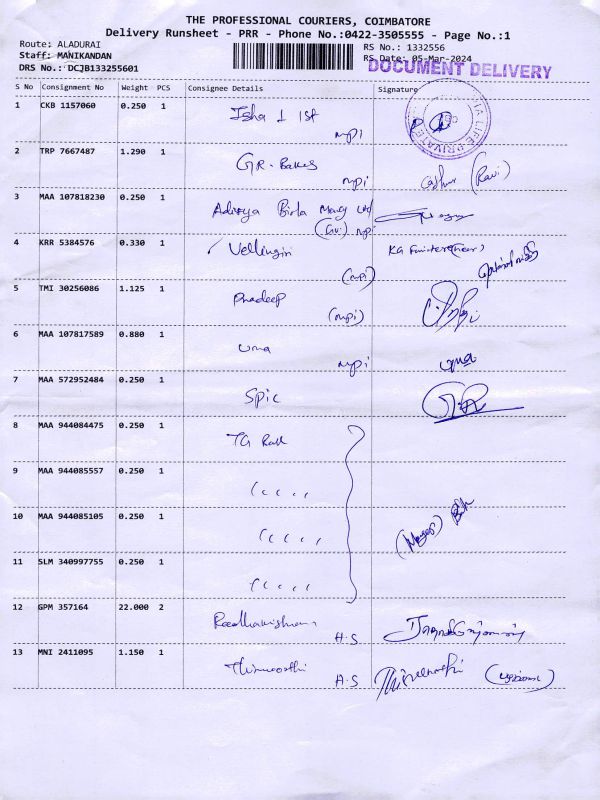 THE PROFESSIONAL COURIERS, COIMBATORE
Delivery Runsheet - PRR - Phone No.:0422-3505555 - Page No.:1
Route: ALADURAI RS No.: 1332556
Staff: MANIKANDAN RS Date: 05-Mar-2024
DRS No.: DCJB133255601 DOCUMENT DELIVERY
S No Consignment No Weight PCS Consignee Details Signature
1 CKB 1157060 0.250 1 Isha 1 1st
mpi
LIFE PRIVATE
2 TRP 7667487 1.290 1 G.R. Bakes
mpi (Ravi)
3 MAA 107818230 0.250 1 Aditya Birla Money Ltd
mpi
4 KRR 5384576 0.330 1 Vellingiri KG
(mpi)
5 TMI 30256086 1.125 1 Pradeep
(mpi)
6 MAA 107817589 0.880 1 uma
mpi உமா
7 MAA 572952484 0.250 1 Spic
8 MAA 944084475 0.250 1 TG
9 MAA 944085557 0.250 1 ( ( ( , ,
10 MAA 944085105 0.250 1 ( ( ( ( ,
11 SLM 340997755 0.250 1 ( ( ( ( ,
12 GPM 357164 22.000 2 Raadhakrishnan
H.S
13 MNI 2411095 1.150 1 Thirumoorthi
H.S